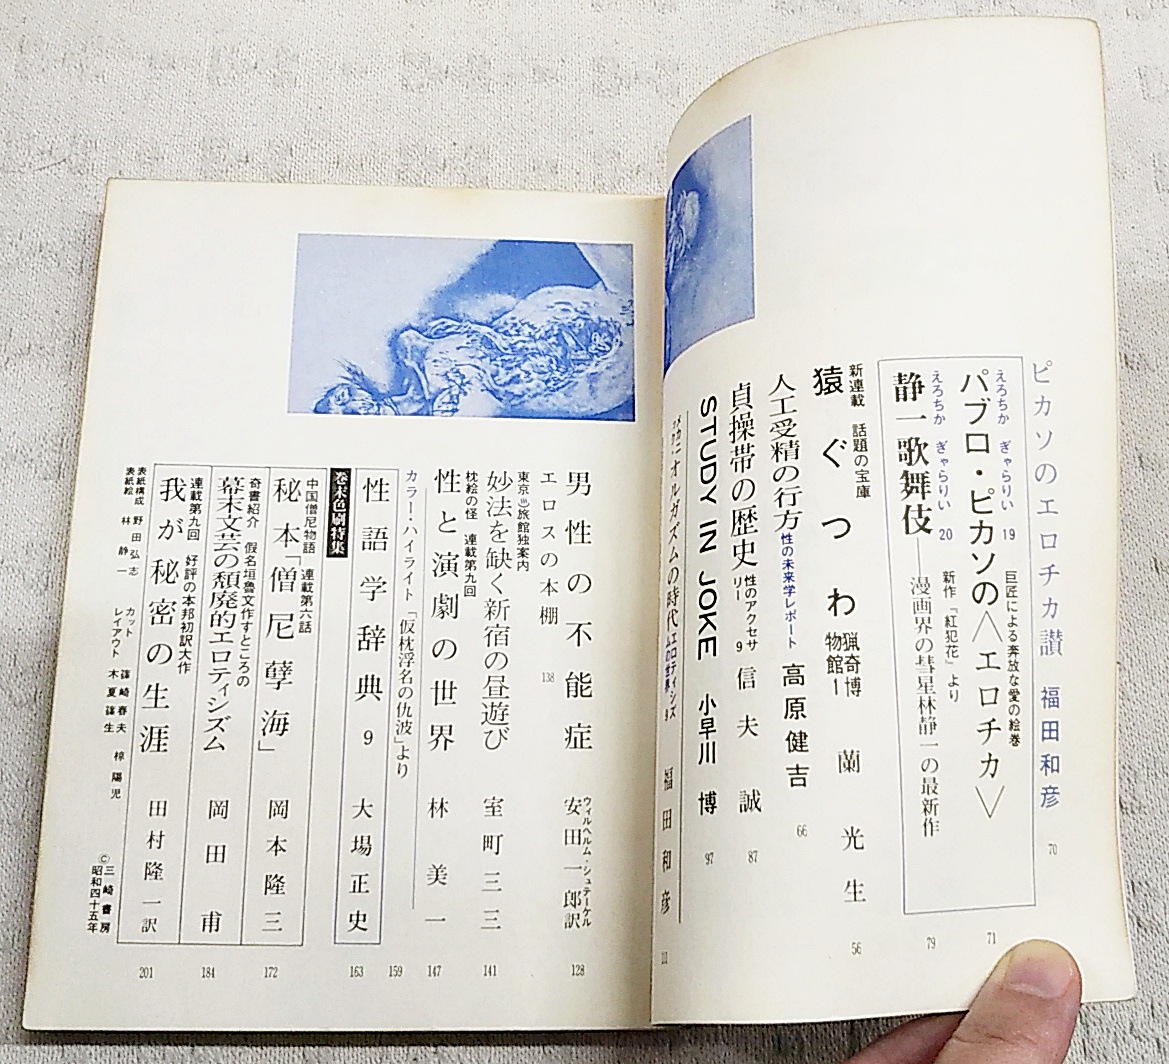 ピカソのエロチカ讃 福田和彦 70
えろちか ぎゃらりい 19 巨匠による奔放な愛の絵巻
パブロ・ピカソの〈エロチカ〉 71
えろちか ぎゃらりい 20 新作「紅犯花」より
静一歌舞伎――漫画界の彗星林静一の最新作 79
新連載 話題の宝庫
猿ぐつわ 猟奇博物館1 蘭光生 56
人工受精の行方 性の未来学レポート 高原健吉 66
貞操帯の歴史 性のアクセサリー9 信夫誠 87
STUDY IN JOKE 小早川博 97
オルガズムの時代 エロティシズムの世界9 福田和彦 111
男性の不能症 ウィルヘルム・シュテーケル 安田一郎訳 128
エロスの本棚 138
東京♨旅館独案内
妙法を缺く新宿の昼遊び 室町三三 141
枕絵の怪 連載第九回
性と演劇の世界 林美一 147
カラー・ハイライト「仮枕浮名の仇波」より 159
巻末色刷特集
性語学辞典 9 大場正史 163
中国僧尼物語 連載第六話
秘本「僧尼孽海」 岡本隆三 172
奇書紹介 假名垣魯文作すところの
幕末文芸の頽廃的エロティシズム 岡田甫 184
連載第九回 好評の本邦初訳大作
我が秘密の生涯 田村隆一訳 201
表紙構成 野田弘志 カット 篠崎春夫 椋陽児
表紙絵 林静一 レイアウト 木夏篠生
©三崎書房
昭和四十五年